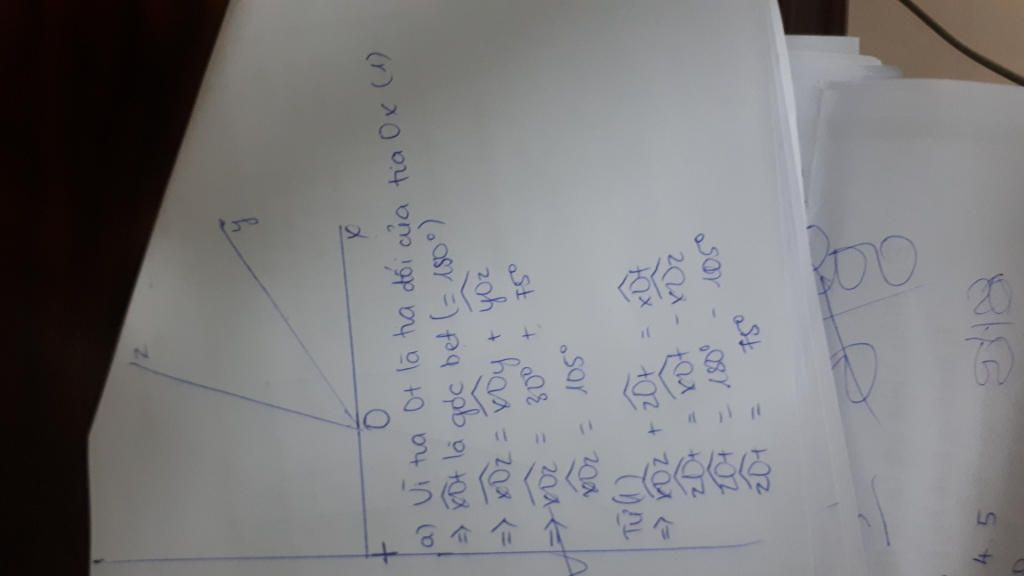 z
y
O
x
t
a) Vì tia Ot là tia đối của tia Ox (1)
=> xOt là góc bet (= 180°)
=> xOz = xOy + yOz
=> xOz = 30° + 75°
xOz = 105°
Từ (1)
=> xOz + zOt = xOt
zOt = xOt - xOz
zOt = 180° - 105°
zOt = 75°
4.5